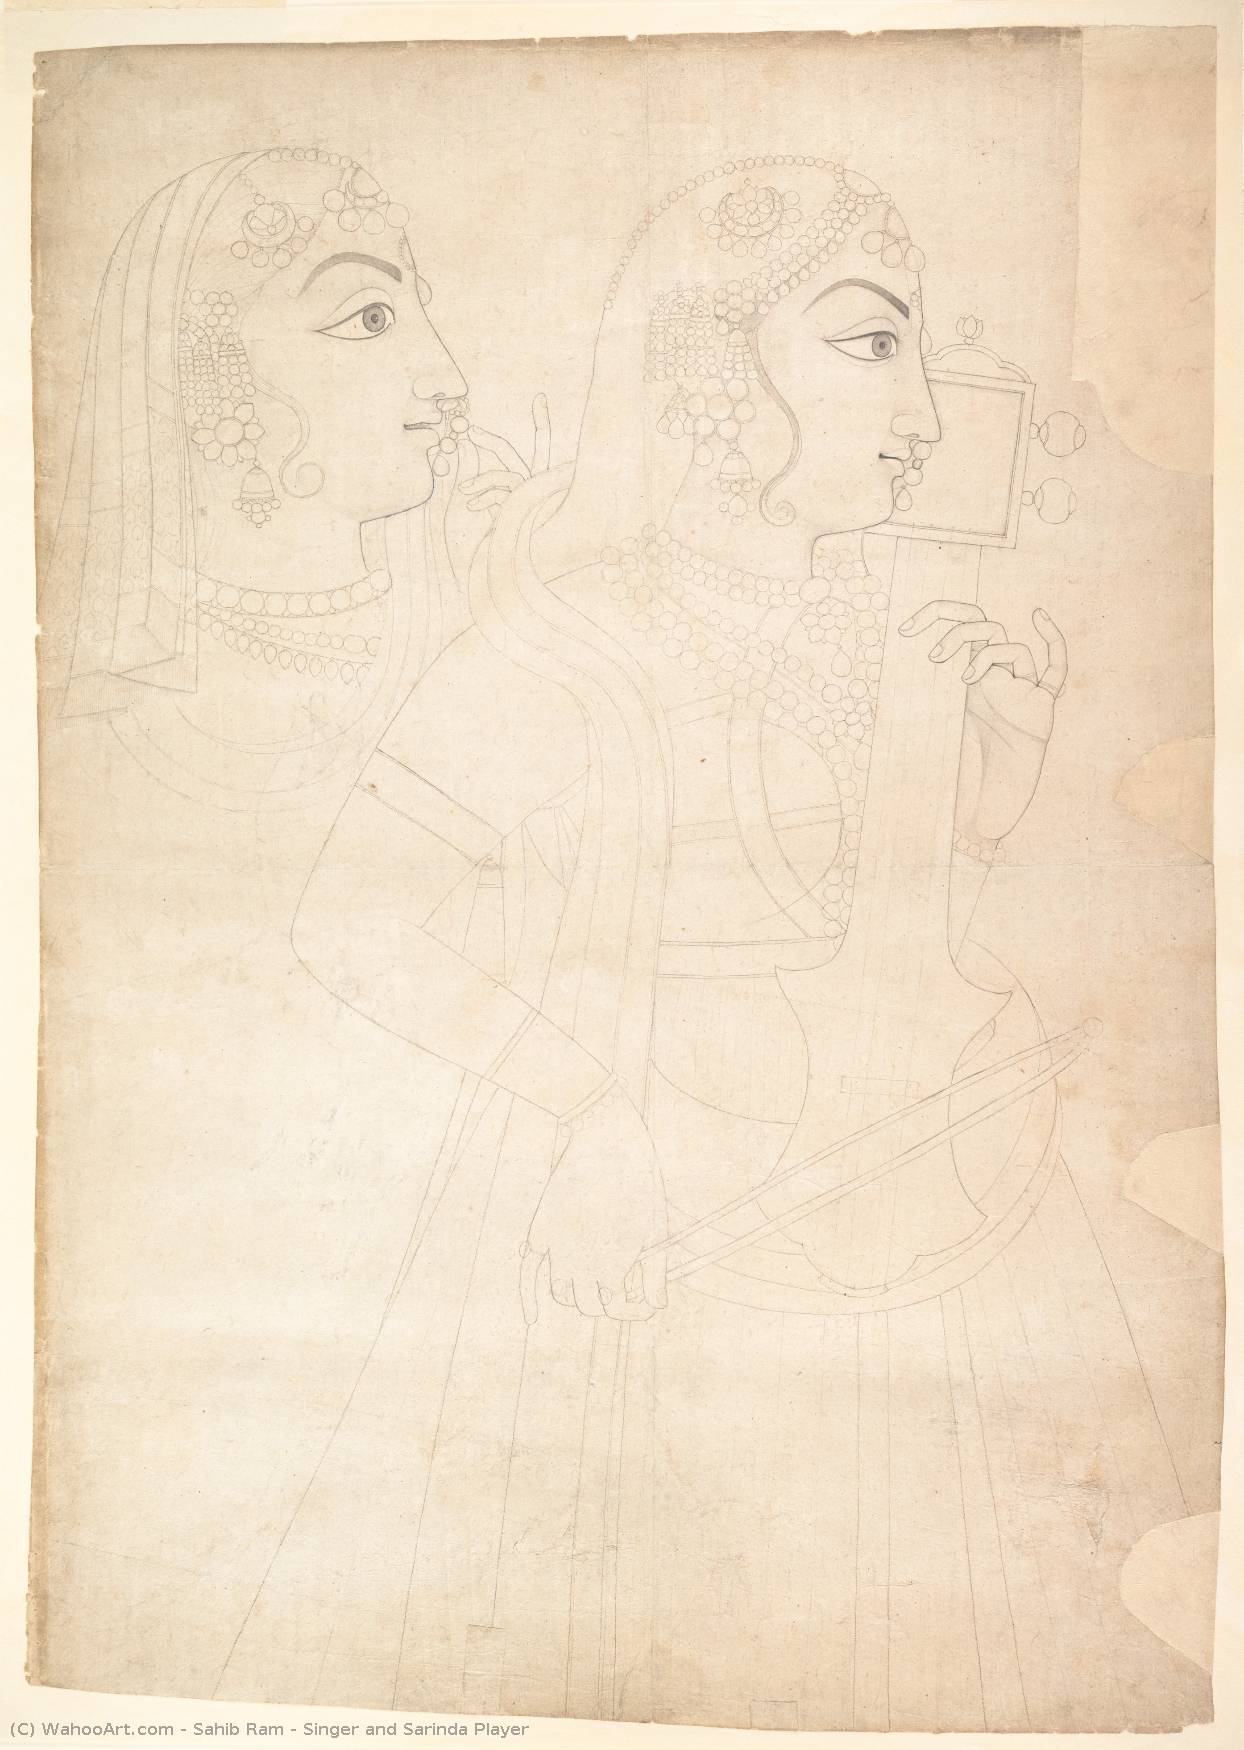 (C) WahooArt.com - Sahib Ram - Singer and Sarinda Player